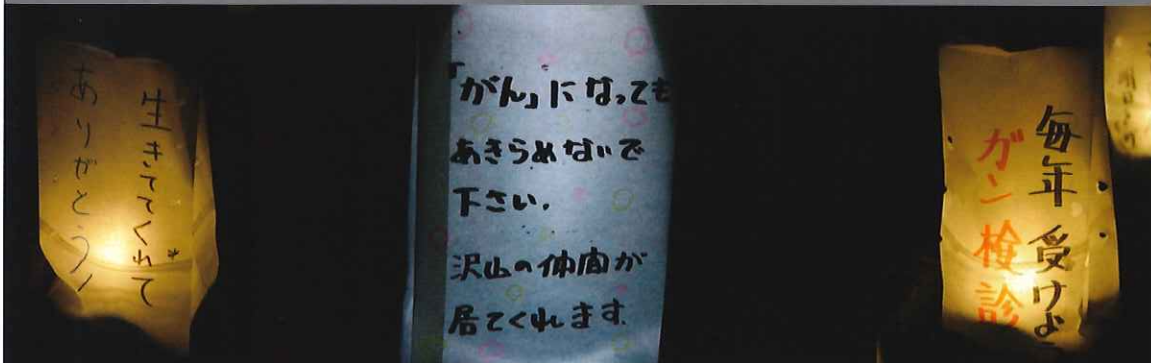 生きててくれて
ありがとう！
「がん」になっても
あきらめないで
下さい.
沢山の仲間が
居てくれます.
毎年 受けよう
ガン検診